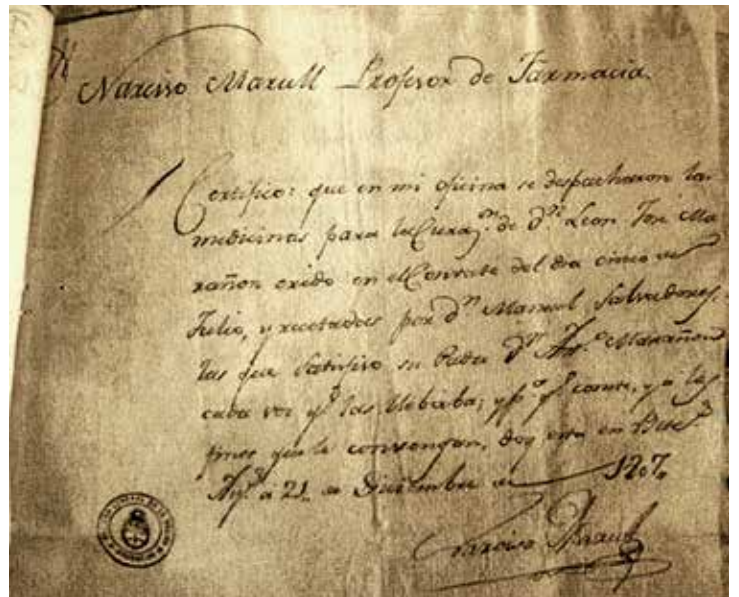 Narciso Marull Profesor de Farmacia.
Certifico: que en mi oficina se despacharon las
medicinas para la Curaz.on de d.n Leon José Ma
rañon erido en el Convate del dia cinco de
Julio, y recetadas por d.n Manuel Salvadores,
las que satisfiso su Padre d.n Ant.o Marañon
cada vez q.e las llebaba; y p.a q.e conste, y a los
fines que le convengan, doy esta en Buen.s
Ay.s a 21, de Diciembre de 1807,,
Narciso Marull